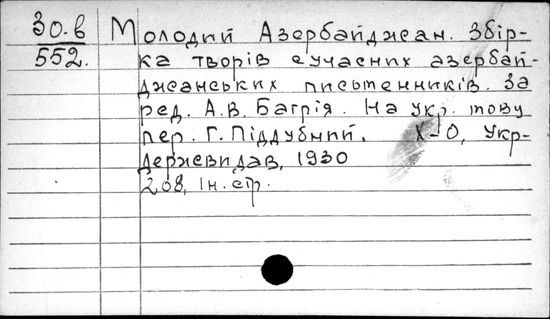 30.в
552.
Молодий Азербайджан. Збір-
ка творів сучасних азербай-
джанських письменників. За
ред. А.В. Багрія. На укр. мову
пер. Г. Піддубний. Х-О, Укр-
державидав, 1930
268, Ін. стр.